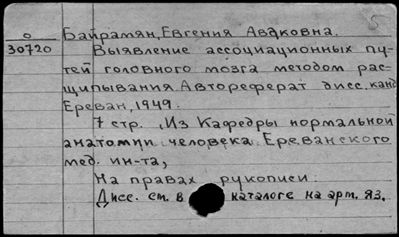 5
о Байрамян, Евгения Авдковна.
30720 Выявление ассоциационных пу-
тей головного мозга методом рас-
щипывания. Автореферат дисс. канд
Ереван, 1949.
7 стр. (Из Кафедры нормальной
анатомии человека Ереванского
мед. ин-та,
На правах рукописи.
Дисс. см. в каталоге на арм. яз.